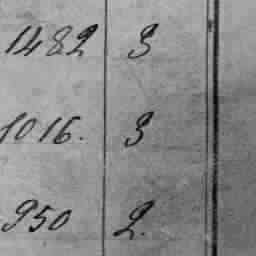 1482 3
1016. 3
950 2.